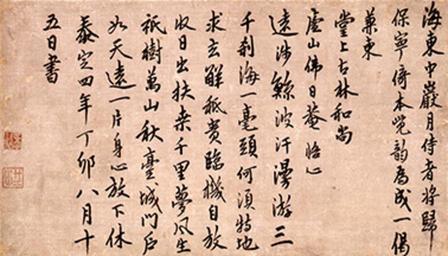 海東中巖月侍者將歸
保寧倚本覺韵為成一偈
東
堂上古林和尚
廬山佛日菴悟心
遠涉鯨波汗漫游三
千剎海一毫頭何須特地
求玄解秪貴臨機自放
收日出扶桒千里夢風生
祇樹萬山秋臺城門戶
如天遠一片身心放下休
泰定四年丁卯八月十
五日書